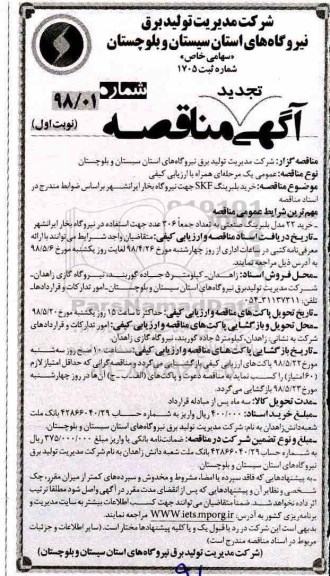 شرکت مدیریت تولید برق
نیروگاه های استان سیستان و بلوچستان
«سهامی خاص»
شماره ثبت ۱۷۰۵
شماره ۹۸/۰۱
تجدید
آگهی مناقصه
(نوبت اول)
مناقصه گزار: شرکت مدیریت تولید برق نیروگاه های استان سیستان و بلوچستان
نوع مناقصه: عمومی یک مرحله ای همراه با ارزیابی کیفی
موضوع مناقصه: خرید بلبرینگ SKF جهت نیروگاه بخار ایرانشهر براساس ضوابط مندرج در
اسناد مناقصه
مهم ترین شرایط عمومی مناقصه
ـ خرید ۲۲ مدل بلبرینگ صنعتی به تعداد جمعاً ۳۰۶ عدد جهت استفاده در نیروگاه بخار ایرانشهر
ـ تاریخ دریافت اسناد مناقصه و ارزیابی کیفی: متقاضیان واجد شرایط می توانند با ارائه
معرفی نامه کتبی در ساعات اداری از روز چهارشنبه مورخ ۹۸/۴/۲۶ لغایت روز یکشنبه مورخ ۹۸/۵/۶
به آدرس ذیل مراجعه نمایند.
محل فروش اسناد: زاهدان-کیلومتر ۵ جاده گوربند، نیروگاه گازی زاهدان-
شرکت مدیریت تولید برق نیروگاه های استان سیستان و بلوچستان-امور تدارکات و قراردادها-
تلفن: ۰۵۴-۳۱۱۳۷۳۱۱
تاریخ تحویل پاکت های مناقصه و ارزیابی کیفی: حداکثر تا ساعت ۱۵ روز یکشنبه مورخ ۹۸/۵/۲۰
محل تحویل و بازگشایی پاکت های مناقصه و ارزیابی کیفی: امور تدارکات و قراردادهای
شرکت به نشانی: زاهدان، کیلومتر ۵ جاده گوربند، نیروگاه گازی زاهدان
ـ تاریخ بازگشایی پاکت های مناقصه و ارزیابی کیفی: ساعت ۱۰ صبح روز سه شنبه
مورخ ۹۸/۵/۲۲ پاکت های ارزیابی کیفی بازگشایی می گردد و مناقصه گرانی که حداقل امتیاز لازم
(۶۰ امتیاز) را کسب نمایند به مناقصه دعوت و پاکت های (الف-ب-ج) آن ها در روز چهارشنبه
مورخ ۹۸/۵/۲۳ بازگشایی می گردد.
ـ مدت تحویل کالا: سه ماه پس از مبادله قرارداد
ـ مبلغ خرید اسناد: ۴۰۰/۰۰۰ ریال واریز به شماره حساب ۴۲۸۶۶۰۴۰/۲۹ بانک ملت
شعبه دانش زاهدان به نام: شرکت مدیریت تولید برق نیروگاه های استان سیستان و بلوچستان.
ـ مبلغ و نوع تضمین شرکت در مناقصه: ضمانت نامه بانکی یا واریز مبلغ ۳۷۵/۰۰۰/۰۰۰ ریال
به شماره حساب ۴۲۸۶۶۰۴۰/۲۹ بانک ملت شعبه دانش زاهدان به نام شرکت مدیریت تولید برق
نیروگاه های استان سیستان و بلوچستان.
ـ به پیشنهادهایی که فاقد سپرده یا امضا، مشروط و مخدوش و سپرده های کمتر از میزان مقرر، چک
شخصی و نظایر آن و پیشنهادهایی که پس از انقضای مدت مقرر در آگهی واصل شود مطلقا ترتیب
اثر داده نخواهد شد. ضمنا متقاضیان می توانند جهت کسب اطلاعات بیشتر به سایت مدیریت و
برنامه ریزی کشور به آدرس: WWW.iets.mporg.ir مراجعه نمایند.
بدیهی است این شرکت در رد یا قبول یک و یا کلیه پیشنهادها مختار است. (سایر اطلاعات و جزئیات
مربوط در اسناد مناقصه مندرج است)
(شرکت مدیریت تولید برق نیروگاه های استان سیستان و بلوچستان)
۹۱